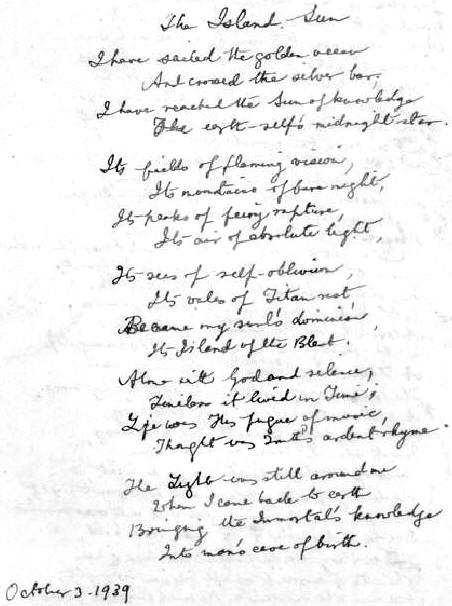 The Island Sun
I have sailed the golden ocean
And crossed the silver bar;
I have reached the Sun of knowledge
The earth-self's midnight star.
Its fields of flaming vision,
Its mountains of bare might,
Its peaks of fiery rapture,
Its air of absolute light,
Its seas of self-oblivion,
Its vales of Titan rest
Became my soul's dominion
Its Island of the Blest.
Alone with God and silence,
Timeless it lived in Time;
Life was His fugue of music,
Thought was Truth's ardent rhyme.
The Light was still around me
When I came back to earth
Bringing the Immortal's knowledge
Into man's cave of birth.
October 3-1939